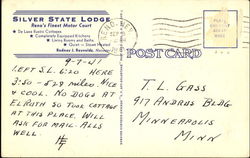 SILVER STATE LODGE
Reno's Finest Motor Court
De Luxe Rustic Cottages
Completely Equipped Kitchens
Living Rooms and Baths
Quiet - Steam Heated
Rodney J. Reynolds,
POST CARD
9-7-41
LEFT S.L. 6:20 HERE
3:50 - 529 MILES. NICE
& COOL. NO DOGS AT
EL ROTH SO TOOK COTTAGE
AT THIS PLACE. WILL
ASK FOR MAIL. ALLS
WELL
T.L. GASS
917 ANDRUS BLDG.
MINNEAPOLIS
MINN